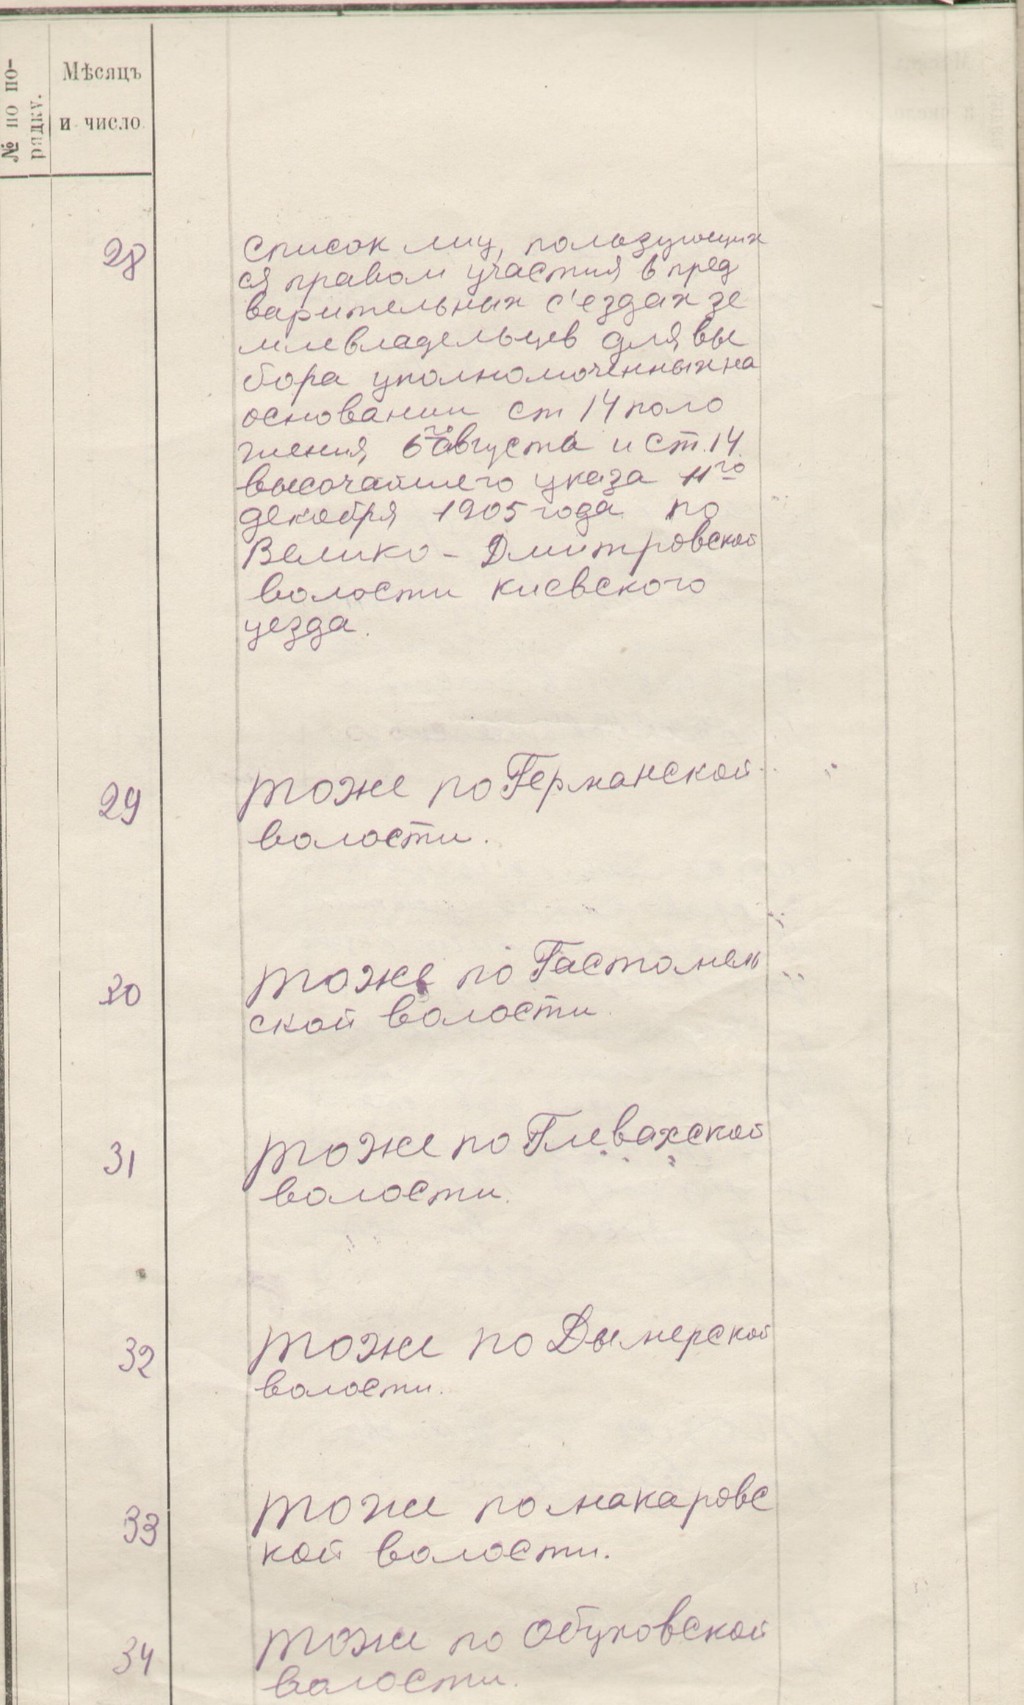 № по по-
рядку.
Мѣсяцъ
и число
28
Список лиц, пользующих
ся правом участия в пред
варительных с'ездах зе
млевладельцев для вы
бора уполномоченных на
основании ст 14 поло
жения, 6го августа и ст. 14
высочайшего указа 11го
декабря 1905 года по
Велико - Дмитровской
волости киевского
уезда.
29
тоже по Германской
волости.
30
тоже по Гастомель
ской волости.
31
тоже по Глевахской
волости.
32
тоже по Дымерской
волости.
33
тоже по макаровс
кой волости.
34
тоже по Обуховской
волости.